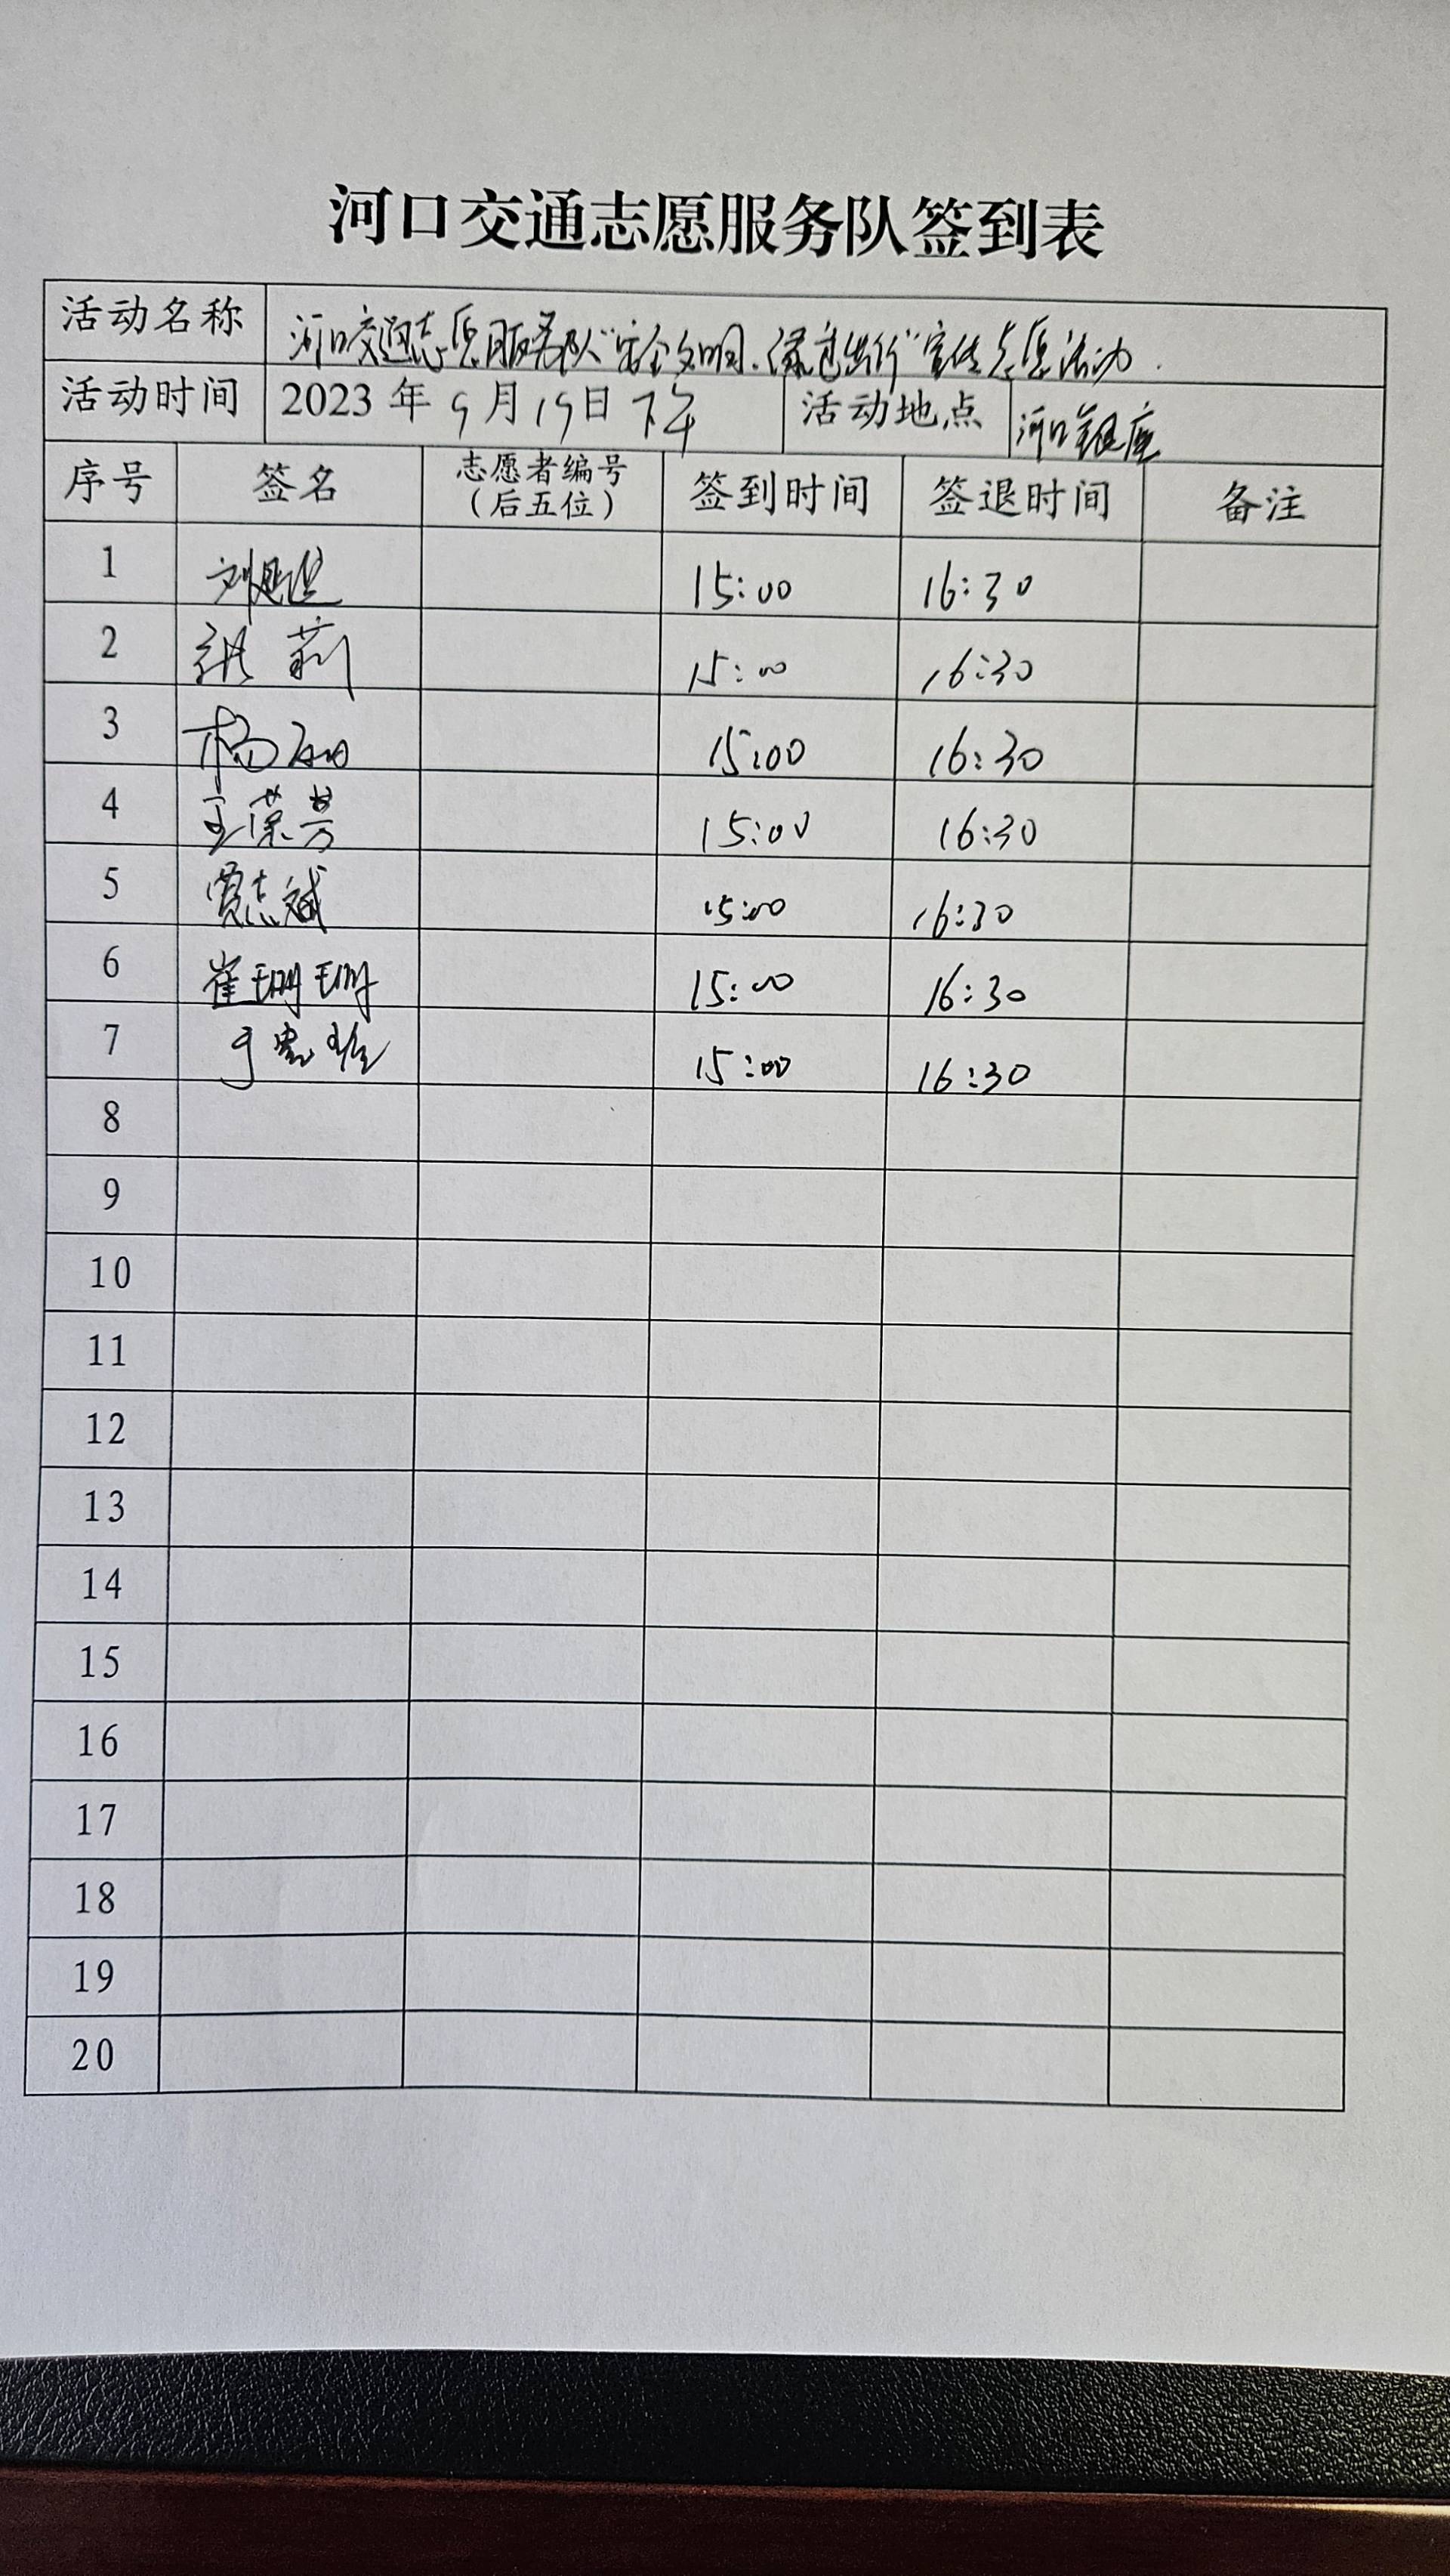 河口交通志愿服务队签到表
活动名称 河口交通志愿服务队“安全文明、绿色出行”宣传志愿活动.
活动时间 2023年9月19日下午 活动地点 河口银座
序号 签名 志愿者编号（后五位） 签到时间 签退时间 备注
1 刘 15:00 16:30
2 莉 15:00 16:30
3 杨丽 15:00 16:30
4 王荣芳 15:00 16:30
5 贾志斌 15:00 16:30
6 崔珊珊 15:00 16:30
7 于 15:00 16:30
8
9
10
11
12
13
14
15
16
17
18
19
20